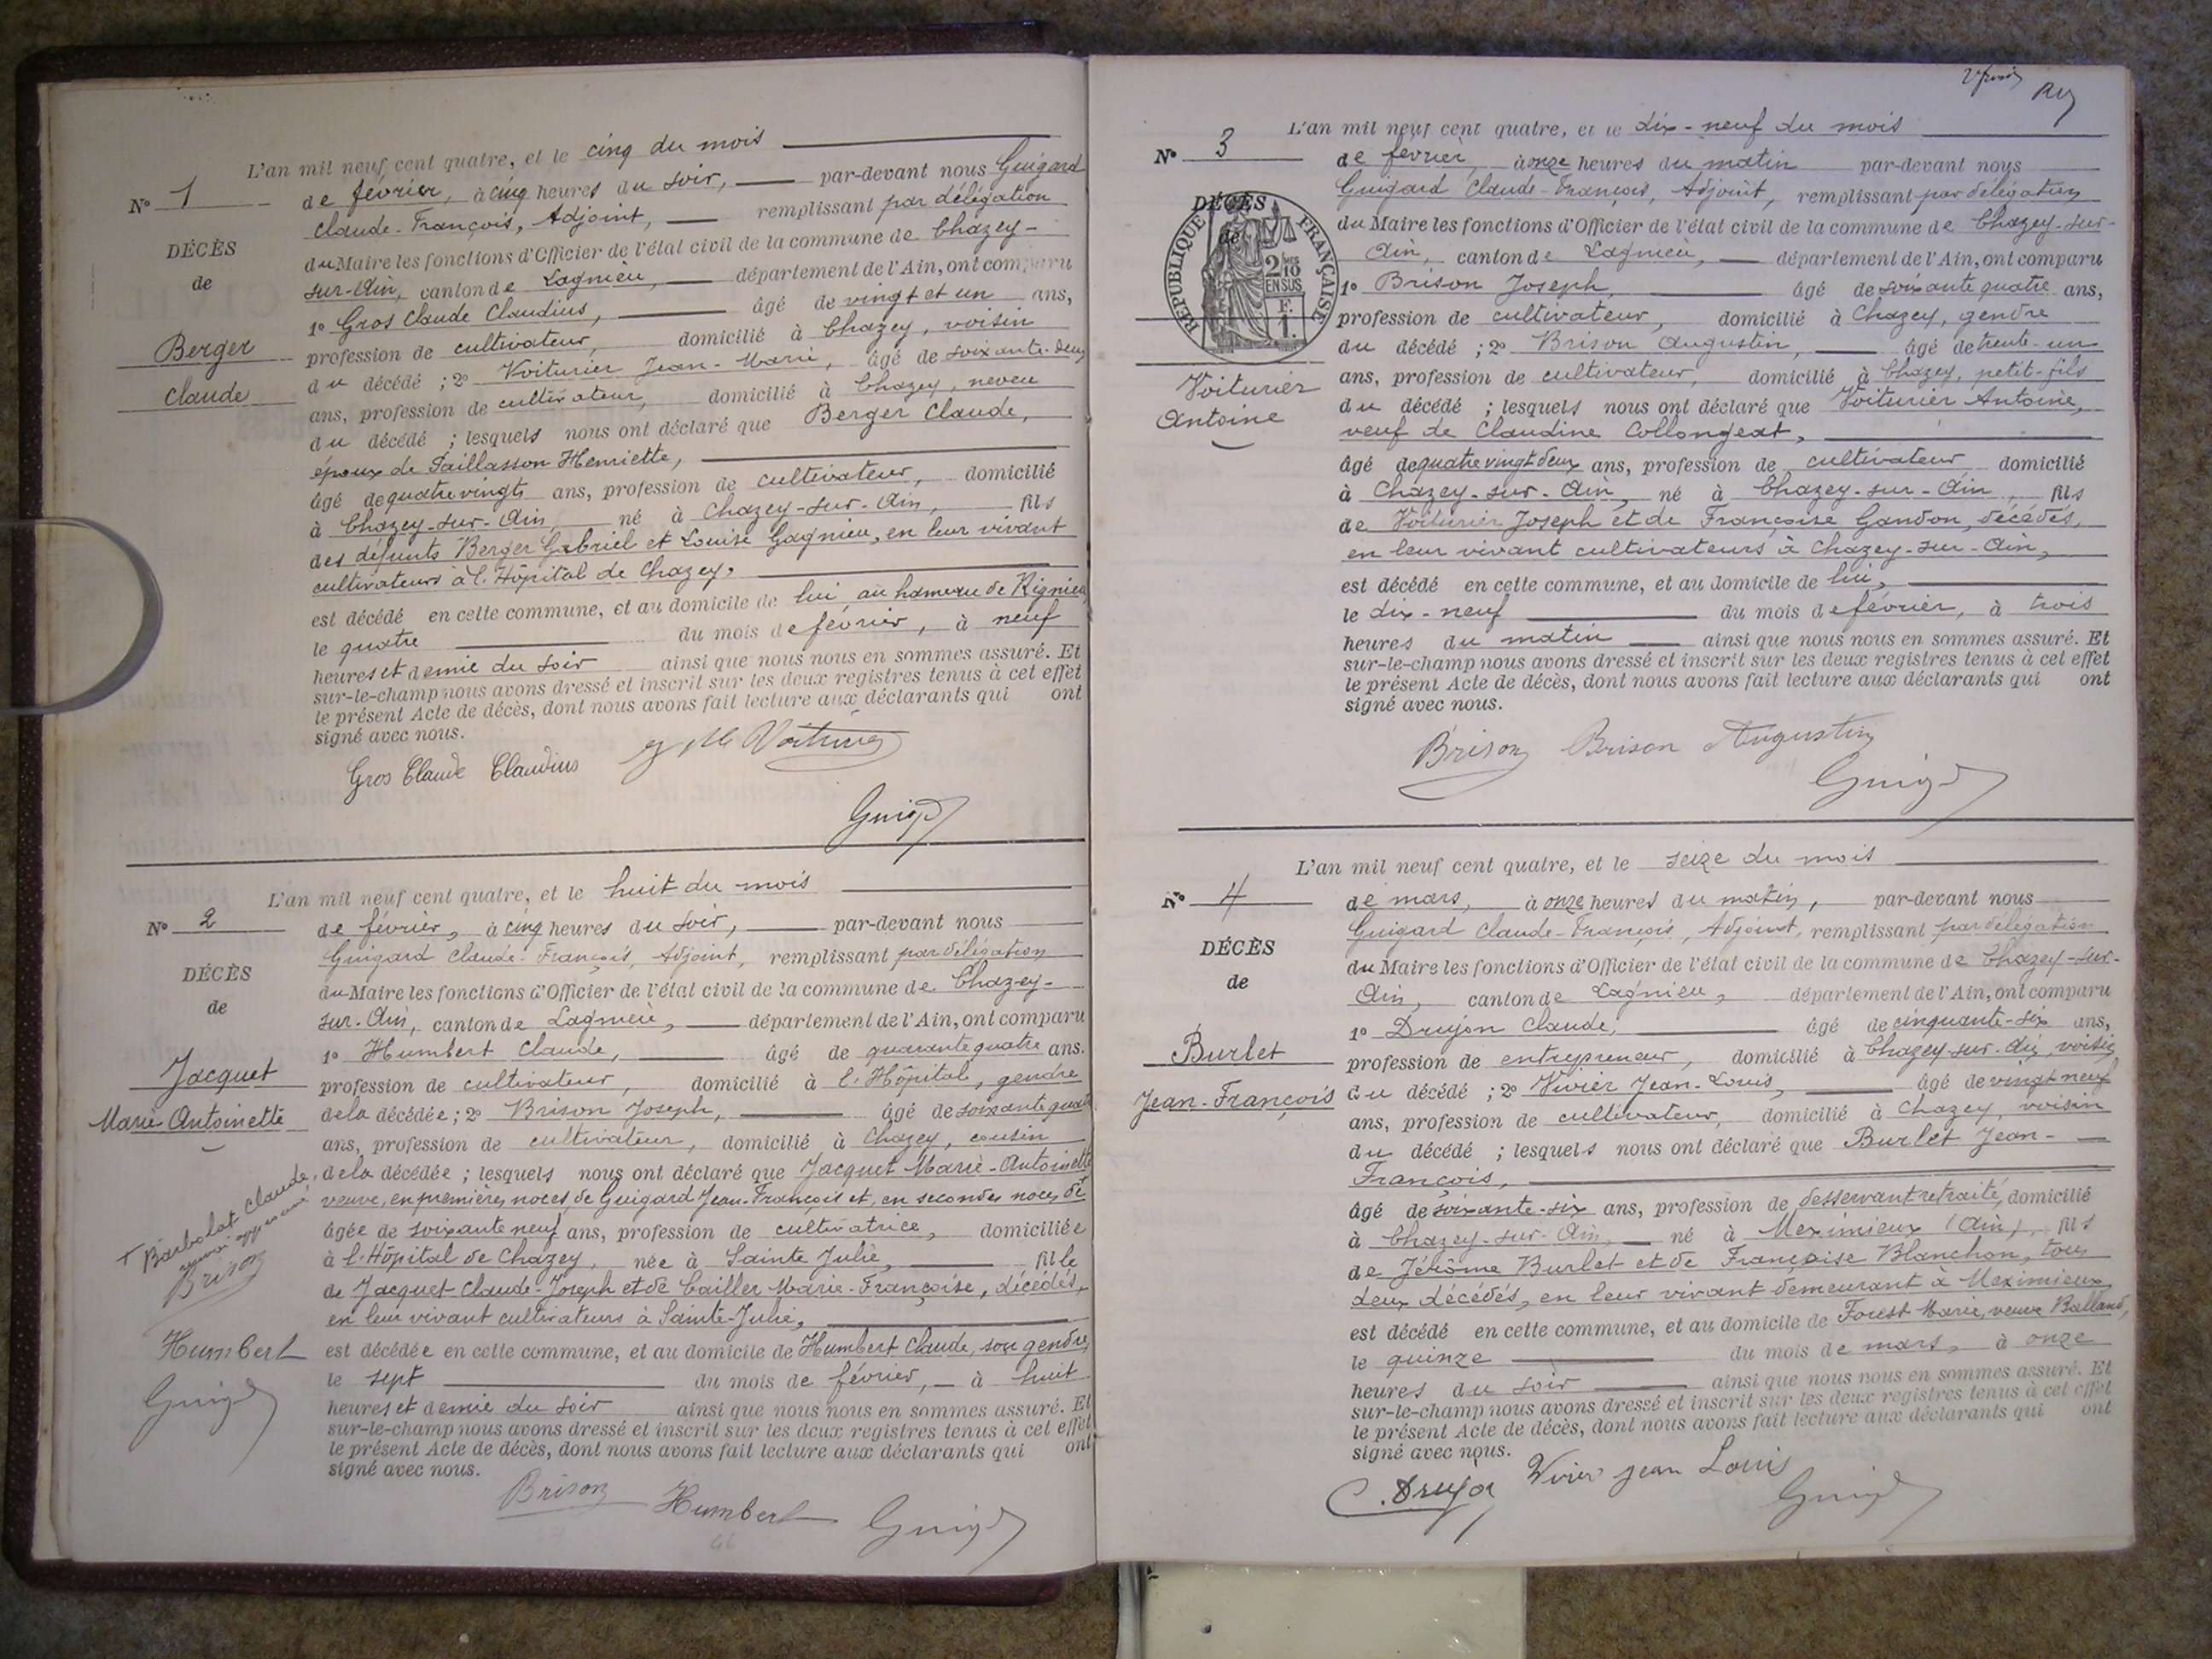 L'an mil neuf cent quatre, et le cinq du mois
de février, à cinq heures du soir, par-devant nous Guigard
Claude-François, Adjoint, remplissant par délégation
du Maire les fonctions d'Officier de l'état civil de la commune de Chazey-
sur-Ain, canton de Lagnieu, département de l'Ain, ont comparu
1º Gros Claude Claudius, âgé de vingt et un ans,
profession de cultivateur, domicilié à Chazey, voisin
du décédé ; 2º Voiturier Jean-Marie, âgé de soixante-deux
ans, profession de cultivateur, domicilié à Chazey, neveu
du décédé ; lesquels nous ont déclaré que Berger Claude,
époux de Paillasson Henriette,
âgé de quatre vingts ans, profession de cultivateur, domicilié
à Chazey-sur-Ain, né à Chazey-sur-Ain, fils
des défunts Berger Gabriel et Louise Gagnieu, en leur vivant
cultivateurs à l'Hôpital de Chazey,
est décédé en cette commune, et au domicile de lui au hameau de Rignieu
le quatre du mois de février, à neuf
heures et demie du soir ainsi que nous nous en sommes assuré. Et
sur-le-champ nous avons dressé et inscrit sur les deux registres tenus à cet effet
le présent Acte de décès, dont nous avons fait lecture aux déclarants qui ont
signé avec nous.
Gros Claude Claudius J M Voiturier
Guigd
Nº 1
DÉCÈS
de
Berger
Claude
L'an mil neuf cent quatre, et le huit du mois
de février, à cinq heures du soir, par-devant nous
Guigard Claude-François, Adjoint, remplissant par délégation
du Maire les fonctions d'Officier de l'état civil de la commune de Chazey-
sur-Ain, canton de Lagnieu, département de l'Ain, ont comparu
1º Humbert Claude, âgé de quarante quatre ans.
profession de cultivateur, domicilié à l'Hôpital, gendre
de la décédée ; 2º Brison Joseph, âgé de soixante quatre
ans, profession de cultivateur, domicilié à Chazey, cousin
de la décédée ; lesquels nous ont déclaré que Jacquet Marie-Antoinette
veuve, en premières noces, de Guigard Jean-François et, en secondes noces, de
âgée de soixante neuf ans, profession de cultivatrice, domiciliée
à l'Hôpital de Chazey, née à Sainte Julie, fille
de Jacquet Claude-Joseph et de Cailler Marie-Françoise, décédés,
en leur vivant cultivateurs à Sainte-Julie,
est décédée en cette commune, et au domicile de Humbert Claude, son gendre,
le sept du mois de février, à huit
heures et demie du soir ainsi que nous nous en sommes assuré. Et
sur-le-champ nous avons dressé et inscrit sur les deux registres tenus à cet effet
le présent Acte de décès, dont nous avons fait lecture aux déclarants qui ont
signé avec nous.
Brison Humbert Guigd
Nº 2
DÉCÈS
de
Jacquet
Marie Antoinette
+ Barbolat Claude,
Brison
Humbert
Guigd
Rey
L'an mil neuf cent quatre, et le dix-neuf du mois
de février, à onze heures du matin par-devant nous
Guigard Claude-François, Adjoint, remplissant par délégation
du Maire les fonctions d'Officier de l'état civil de la commune de Chazey-sur-
Ain, canton de Lagnieu, département de l'Ain, ont comparu
1º Brison Joseph, âgé de soixante quatre ans,
profession de cultivateur, domicilié à Chazey, gendre
du décédé ; 2º Brison Augustin, âgé de trente-un
ans, profession de cultivateur, domicilié à Chazey, petit-fils
du décédé ; lesquels nous ont déclaré que Voiturier Antoine,
veuf de Claudine Collongeat,
âgé de quatre vingt deux ans, profession de cultivateur domicilié
à Chazey-sur-Ain, né à Chazey-sur-Ain, fils
de Voiturier Joseph et de Françoise Gandon, décédés,
en leur vivant cultivateurs à Chazey-sur-Ain,
est décédé en cette commune, et au domicile de lui,
le dix-neuf du mois de février, à trois
heures du matin ainsi que nous nous en sommes assuré. Et
sur-le-champ nous avons dressé et inscrit sur les deux registres tenus à cet effet
le présent Acte de décès, dont nous avons fait lecture aux déclarants qui ont
signé avec nous.
Brison Brison Augustin
Guigd
Nº 3
DÉCÈS
de
RÉPUBLIQUE FRANÇAISE
2 MES
10
EN SUS
F.
1.
Voiturier
Antoine
L'an mil neuf cent quatre, et le seize du mois
de mars, à onze heures du matin, par-devant nous
Guigard Claude-François, Adjoint, remplissant par délégation
du Maire les fonctions d'Officier de l'état civil de la commune de Chazey-sur-
Ain, canton de Lagnieu, département de l'Ain, ont comparu
1º Drujon Claude, âgé de cinquante-six ans,
profession de entrepreneur, domicilié à Chazey-sur-Ain, voisin
du décédé ; 2º Vivier Jean-Louis, âgé de vingt neuf
ans, profession de cultivateur, domicilié à Chazey, voisin
du décédé ; lesquels nous ont déclaré que Burlet Jean-
François,
âgé de soixante-six ans, profession de desservant retraité, domicilié
à Chazey-sur-Ain, né à Meximieux (Ain), fils
de Jérôme Burlet et de Françoise Blanchon, tous
deux décédés, en leur vivant demeurant à Meximieux,
est décédé en cette commune, et au domicile de Forest Marie, veuve Balland,
le quinze du mois de mars, à onze
heures du soir ainsi que nous nous en sommes assuré. Et
sur-le-champ nous avons dressé et inscrit sur les deux registres tenus à cet effet
le présent Acte de décès, dont nous avons fait lecture aux déclarants qui ont
signé avec nous.
C. Drujon Vivier jean Louis
Guigd
Nº 4
DÉCÈS
de
Burlet
Jean-François